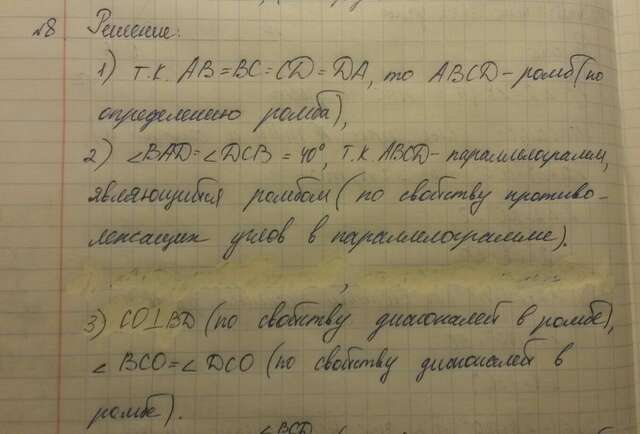 №8 Решение:
1) т.к. AB=BC=CD=DA, то ABCD-ромб (по
определению ромба),
2) ∠BAD=∠DCB=40°, т.к. ABCD-параллелограмм,
являющийся ромбом (по свойству противо-
лежащих углов в параллелограмме).
3) CO⊥BD (по свойству диагоналей в ромбе),
∠BCO=∠DCO (по свойству диагоналей в
ромбе).
∠BCD